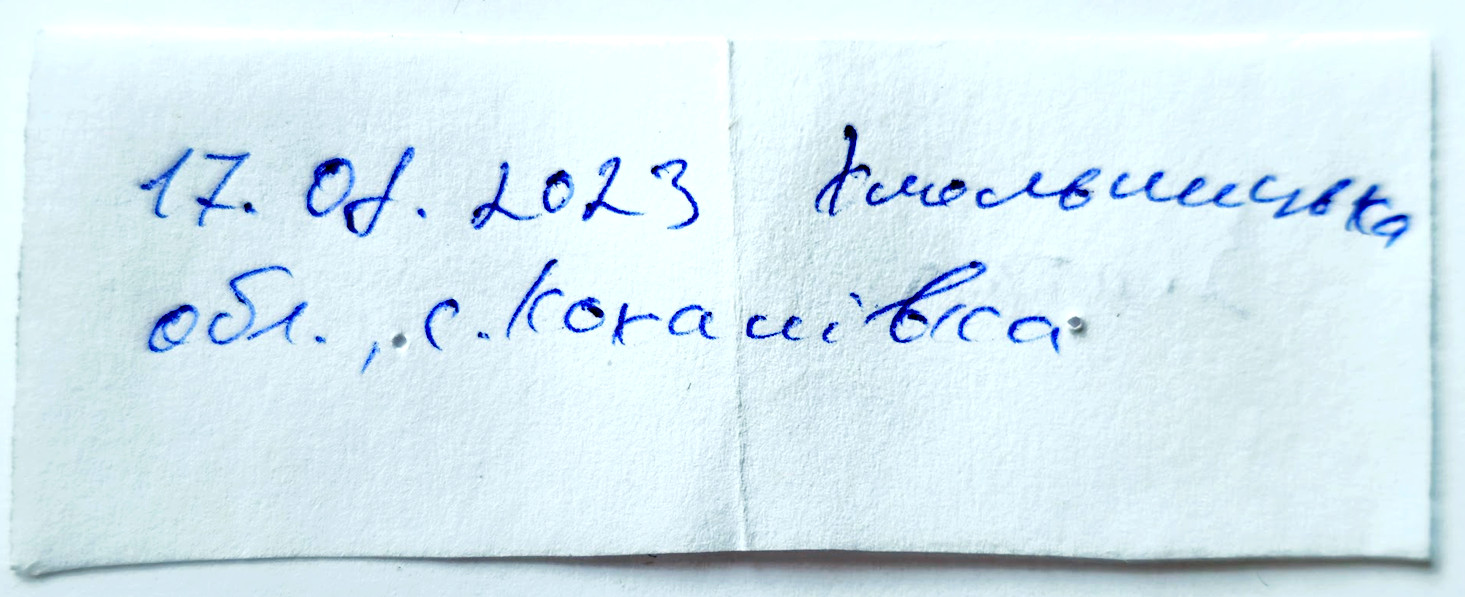 17. 08. 2023 Хмельницька
обл., с. Коханівка